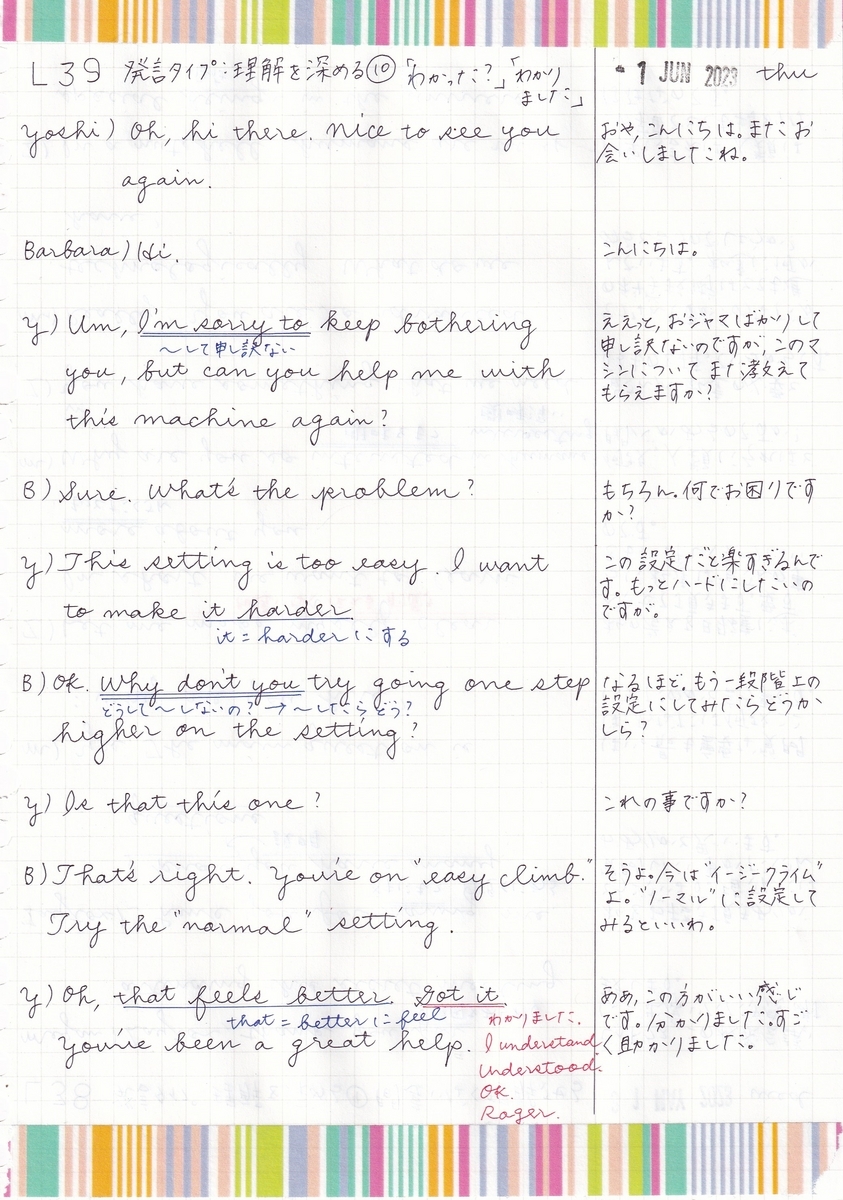 L39 発言タイプ:理解を深める⑩「わかった?」「わかりました」
- 1 JUN 2023 thu
Yoshi) Oh, hi there. Nice to see you
again.
おや,こんにちは。またお
会いしましたね。
Barbara) Hi.
こんにちは。
Y) Um, I'm sorry to keep bothering
〜して申し訳ない
you, but can you help me with
this machine again?
ええっと,おジャマばかりして
申し訳ないのですが,このマ
シンについてまた教えて
もらえますか?
B) Sure. What's the problem?
もちろん。何でお困りです
か?
Y) This setting is too easy. I want
to make it harder.
it = harder にする
この設定だと楽すぎるんで
す。もっとハードにしたいの
ですが。
B) OK. Why don't you try going one step
どうして〜しないの? → 〜したらどう?
higher on the setting?
なるほど。もう一段階上の
設定にしてみたらどうか
しら?
Y) Is that this one?
これの事ですか?
B) That's right. You're on "easy climb."
Try the "normal" setting.
そうよ。今は"イージークライム"
よ。"ノーマル"に設定して
みるといいわ。
Y) Oh, that feels better. Got it.
that = better に feel
You've been a great help.
わかりました.
I understand.
Understood.
OK.
Rager.
ああ,この方がいい感じ
です。分かりました。すご
く助かりました。